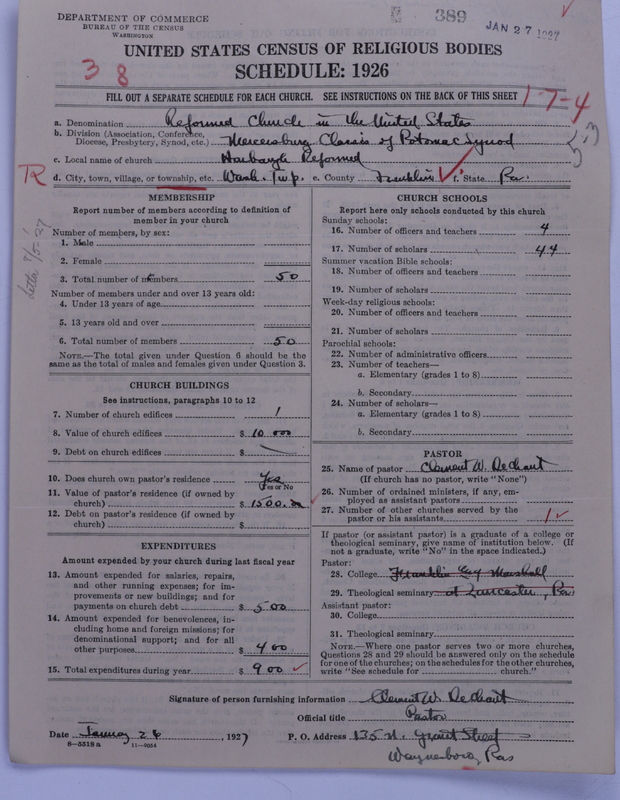 DEPARTMENT OF COMMERCE
BUREAU OF THE CENSUS
WASHINGTON
389
JAN 27 1927
UNITED STATES CENSUS OF RELIGIOUS BODIES
SCHEDULE: 1926
3 8
FILL OUT A SEPARATE SCHEDULE FOR EACH CHURCH. SEE INSTRUCTIONS ON THE BACK OF THIS SHEET
1-7-4
a. Denomination Reformed Church in the United States
b. Division (Association, Conference, Diocese, Presbytery, Synod, etc.) Mercersburg Classis of Potomac Synod
c. Local name of church Harbaugh Reformed
R d. City, town, village, or township, etc. Wash. Twp. e. County Franklin f. State Pa.
MEMBERSHIP
Report number of members according to definition of member in your church
Number of members, by sex:
1. Male
2. Female
3. Total number of members 50
Number of members under and over 13 years old:
4. Under 13 years of age
5. 13 years old and over
6. Total number of members 50
NOTE.—The total given under Question 6 should be the same as the total of males and females given under Question 3.
CHURCH BUILDINGS
See instructions, paragraphs 10 to 12
7. Number of church edifices 1
8. Value of church edifices $ 10 000
9. Debt on church edifices $
10. Does church own pastor's residence Yes
Yes or No
11. Value of pastor's residence (if owned by church) $ 1500.00
12. Debt on pastor's residence (if owned by church) $
EXPENDITURES
Amount expended by your church during last fiscal year
13. Amount expended for salaries, repairs, and other running expenses; for improvements or new buildings; and for payments on church debt $ 500
14. Amount expended for benevolences, including home and foreign missions; for denominational support; and for all other purposes $ 400
15. Total expenditures during year $ 900
CHURCH SCHOOLS
Report here only schools conducted by this church
Sunday schools:
16. Number of officers and teachers 4
17. Number of scholars 44
Summer vacation Bible schools:
18. Number of officers and teachers
19. Number of scholars
Week-day religious schools:
20. Number of officers and teachers
21. Number of scholars
Parochial schools:
22. Number of administrative officers
23. Number of teachers—
a. Elementary (grades 1 to 8)
b. Secondary
24. Number of scholars—
a. Elementary (grades 1 to 8)
b. Secondary
PASTOR
25. Name of pastor Clement W. DeChant
(If church has no pastor, write "None")
26. Number of ordained ministers, if any, employed as assistant pastors
27. Number of other churches served by the pastor or his assistants 1
If pastor (or assistant pastor) is a graduate of a college or theological seminary, give name of institution below. (If not a graduate, write "No" in the space indicated.)
Pastor:
28. College Franklin and Marshall
29. Theological seminary at Lancaster, Pa.
Assistant pastor:
30. College
31. Theological seminary
NOTE.—Where one pastor serves two or more churches, Questions 28 and 29 should be answered only on the schedule for one of the churches; on the schedules for the other churches, write "See schedule for church."
Signature of person furnishing information Clement W. DeChant
Official title Pastor
Date January 26, 1927 P. O. Address 135 N. Grant Street
Waynesboro, Pa
8-5518 a 11-9054